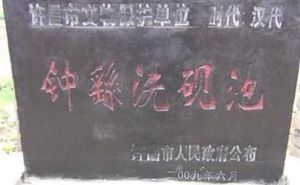 许昌市文物保护单位 时代:汉代
钟繇洗砚池
许昌市人民政府公布
二〇〇九年六月